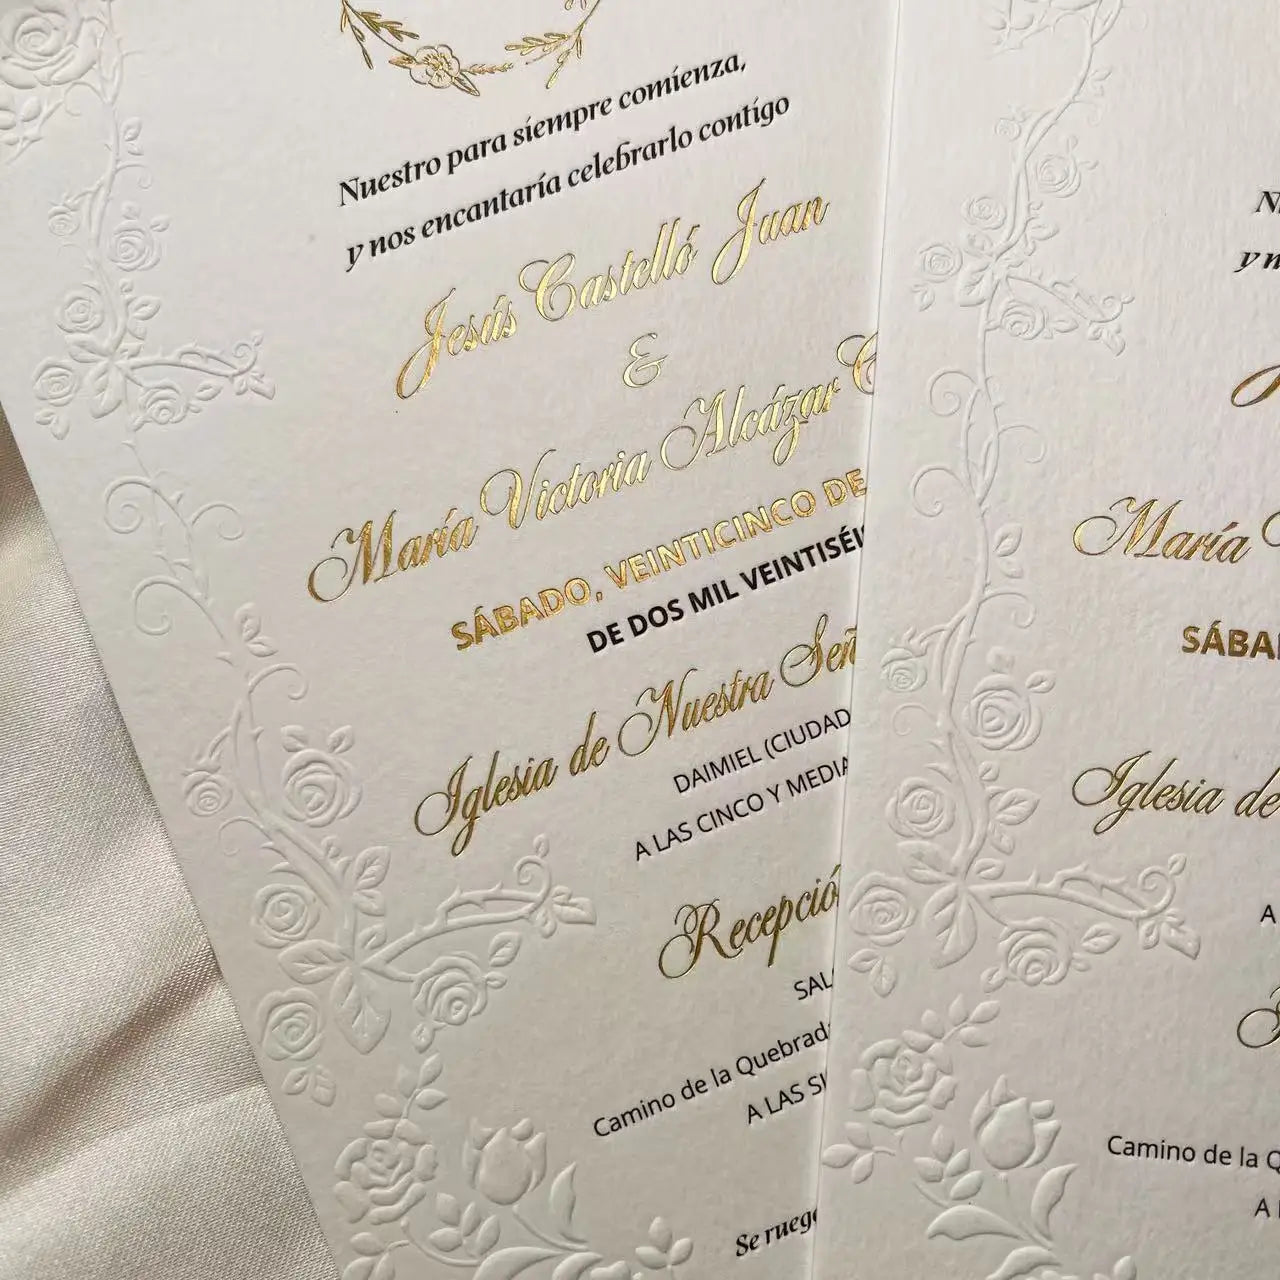 Nuestro para siempre comienza,
y nos encantaría celebrarlo contigo
Jesús Castelló Juan
&
María Victoria Alcázar
SÁBADO, VEINTICINCO DE
DE DOS MIL VEINTISÉI
Iglesia de Nuestra Señ
DAIMIEL (CIUDAD
A LAS CINCO Y MEDIA
Recepción
SAL
Camino de la Quebrad
A LAS SI
Se rueg
N
y n
J
María V
SÁBA
Iglesia de
A
Camino de la Q
A